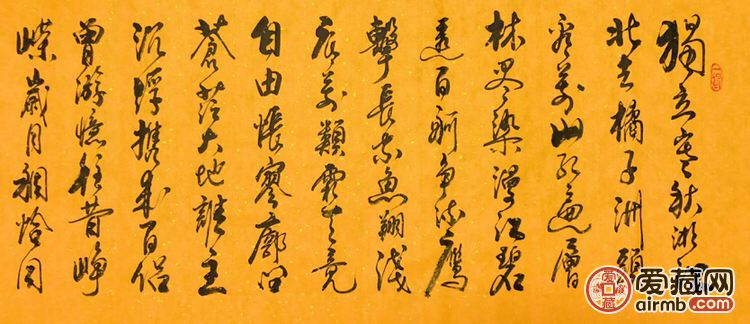 獨立寒秋湘江
北去橘子洲頭
看萬山紅遍層
林盡染漫江碧
透百舸争流鷹
擊長空魚翔淺
底萬類霜天竞
自由悵寥廓問
蒼茫大地誰主
沉浮攜來百侣
曾游憶往昔崢
嶸歲月稠恰同
爱藏网
airmb.com